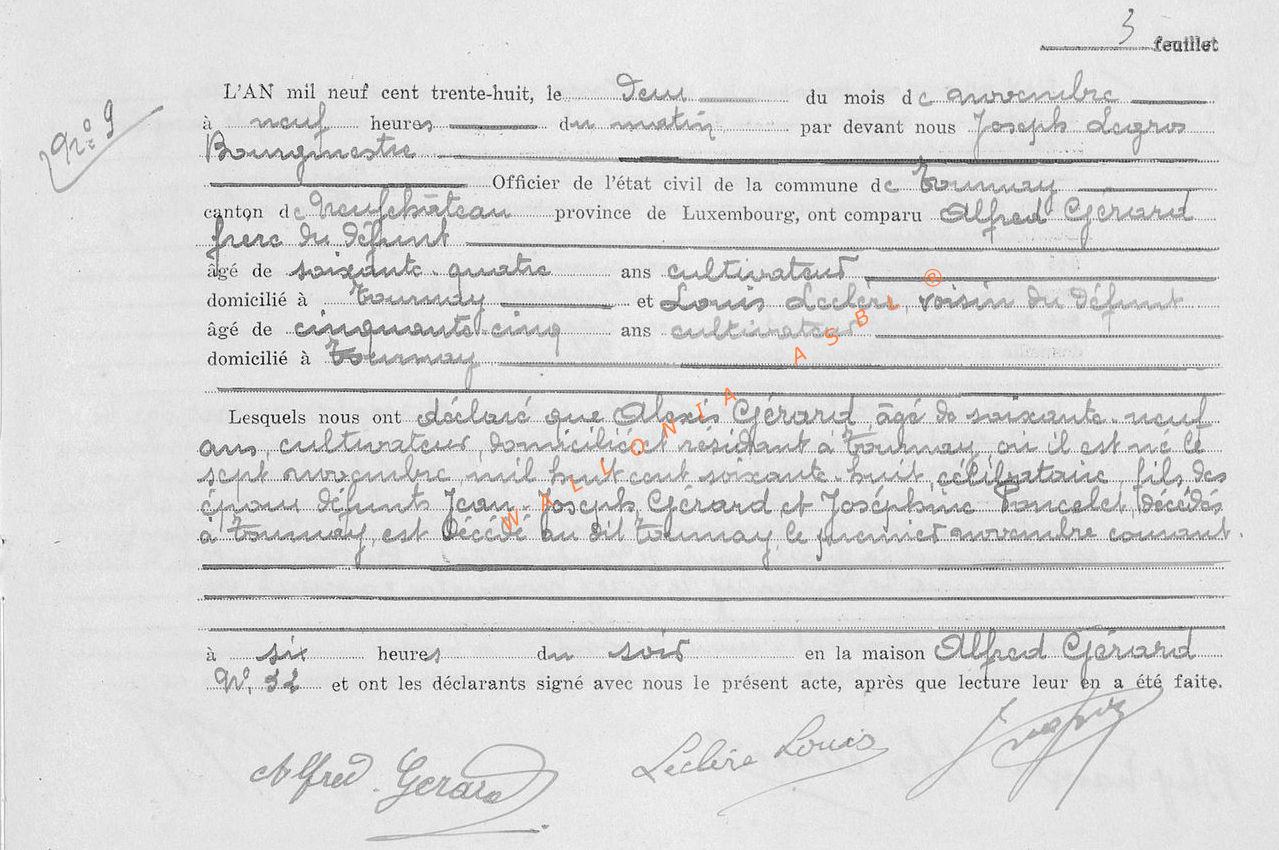 3 feuillet
N° 9
L'AN mil neuf cent trente-huit, le deux du mois de novembre
à neuf heures du matin par devant nous Joseph Legros
Bourgmestre
Officier de l'état civil de la commune de Tournay
canton de Neufchâteau province de Luxembourg, ont comparu Alfred Gérard
frère du défunt
âgé de soixante-quatre ans cultivateur
domicilié à Tournay et Louis Leclère, voisin du défunt
âgé de cinquante-cinq ans cultivateur
domicilié à Tournay
Lesquels nous ont déclaré que Alexis Gérard, âgé de soixante-neuf
ans, cultivateur, domicilié et résidant à Tournay, où il est né le
sept novembre mil huit cent soixante-huit, célibataire, fils des
époux défunts Jean-Joseph Gérard et Joséphine Poncelet, décédés
à Tournay, est décédé au dit Tournay, le premier novembre courant.
à six heures du soir en la maison Alfred Gérard
N° 32 et ont les déclarants signé avec nous le présent acte, après que lecture leur en a été faite.
Alfred Gerard Leclère Louis
WALLONIA ASBL ®